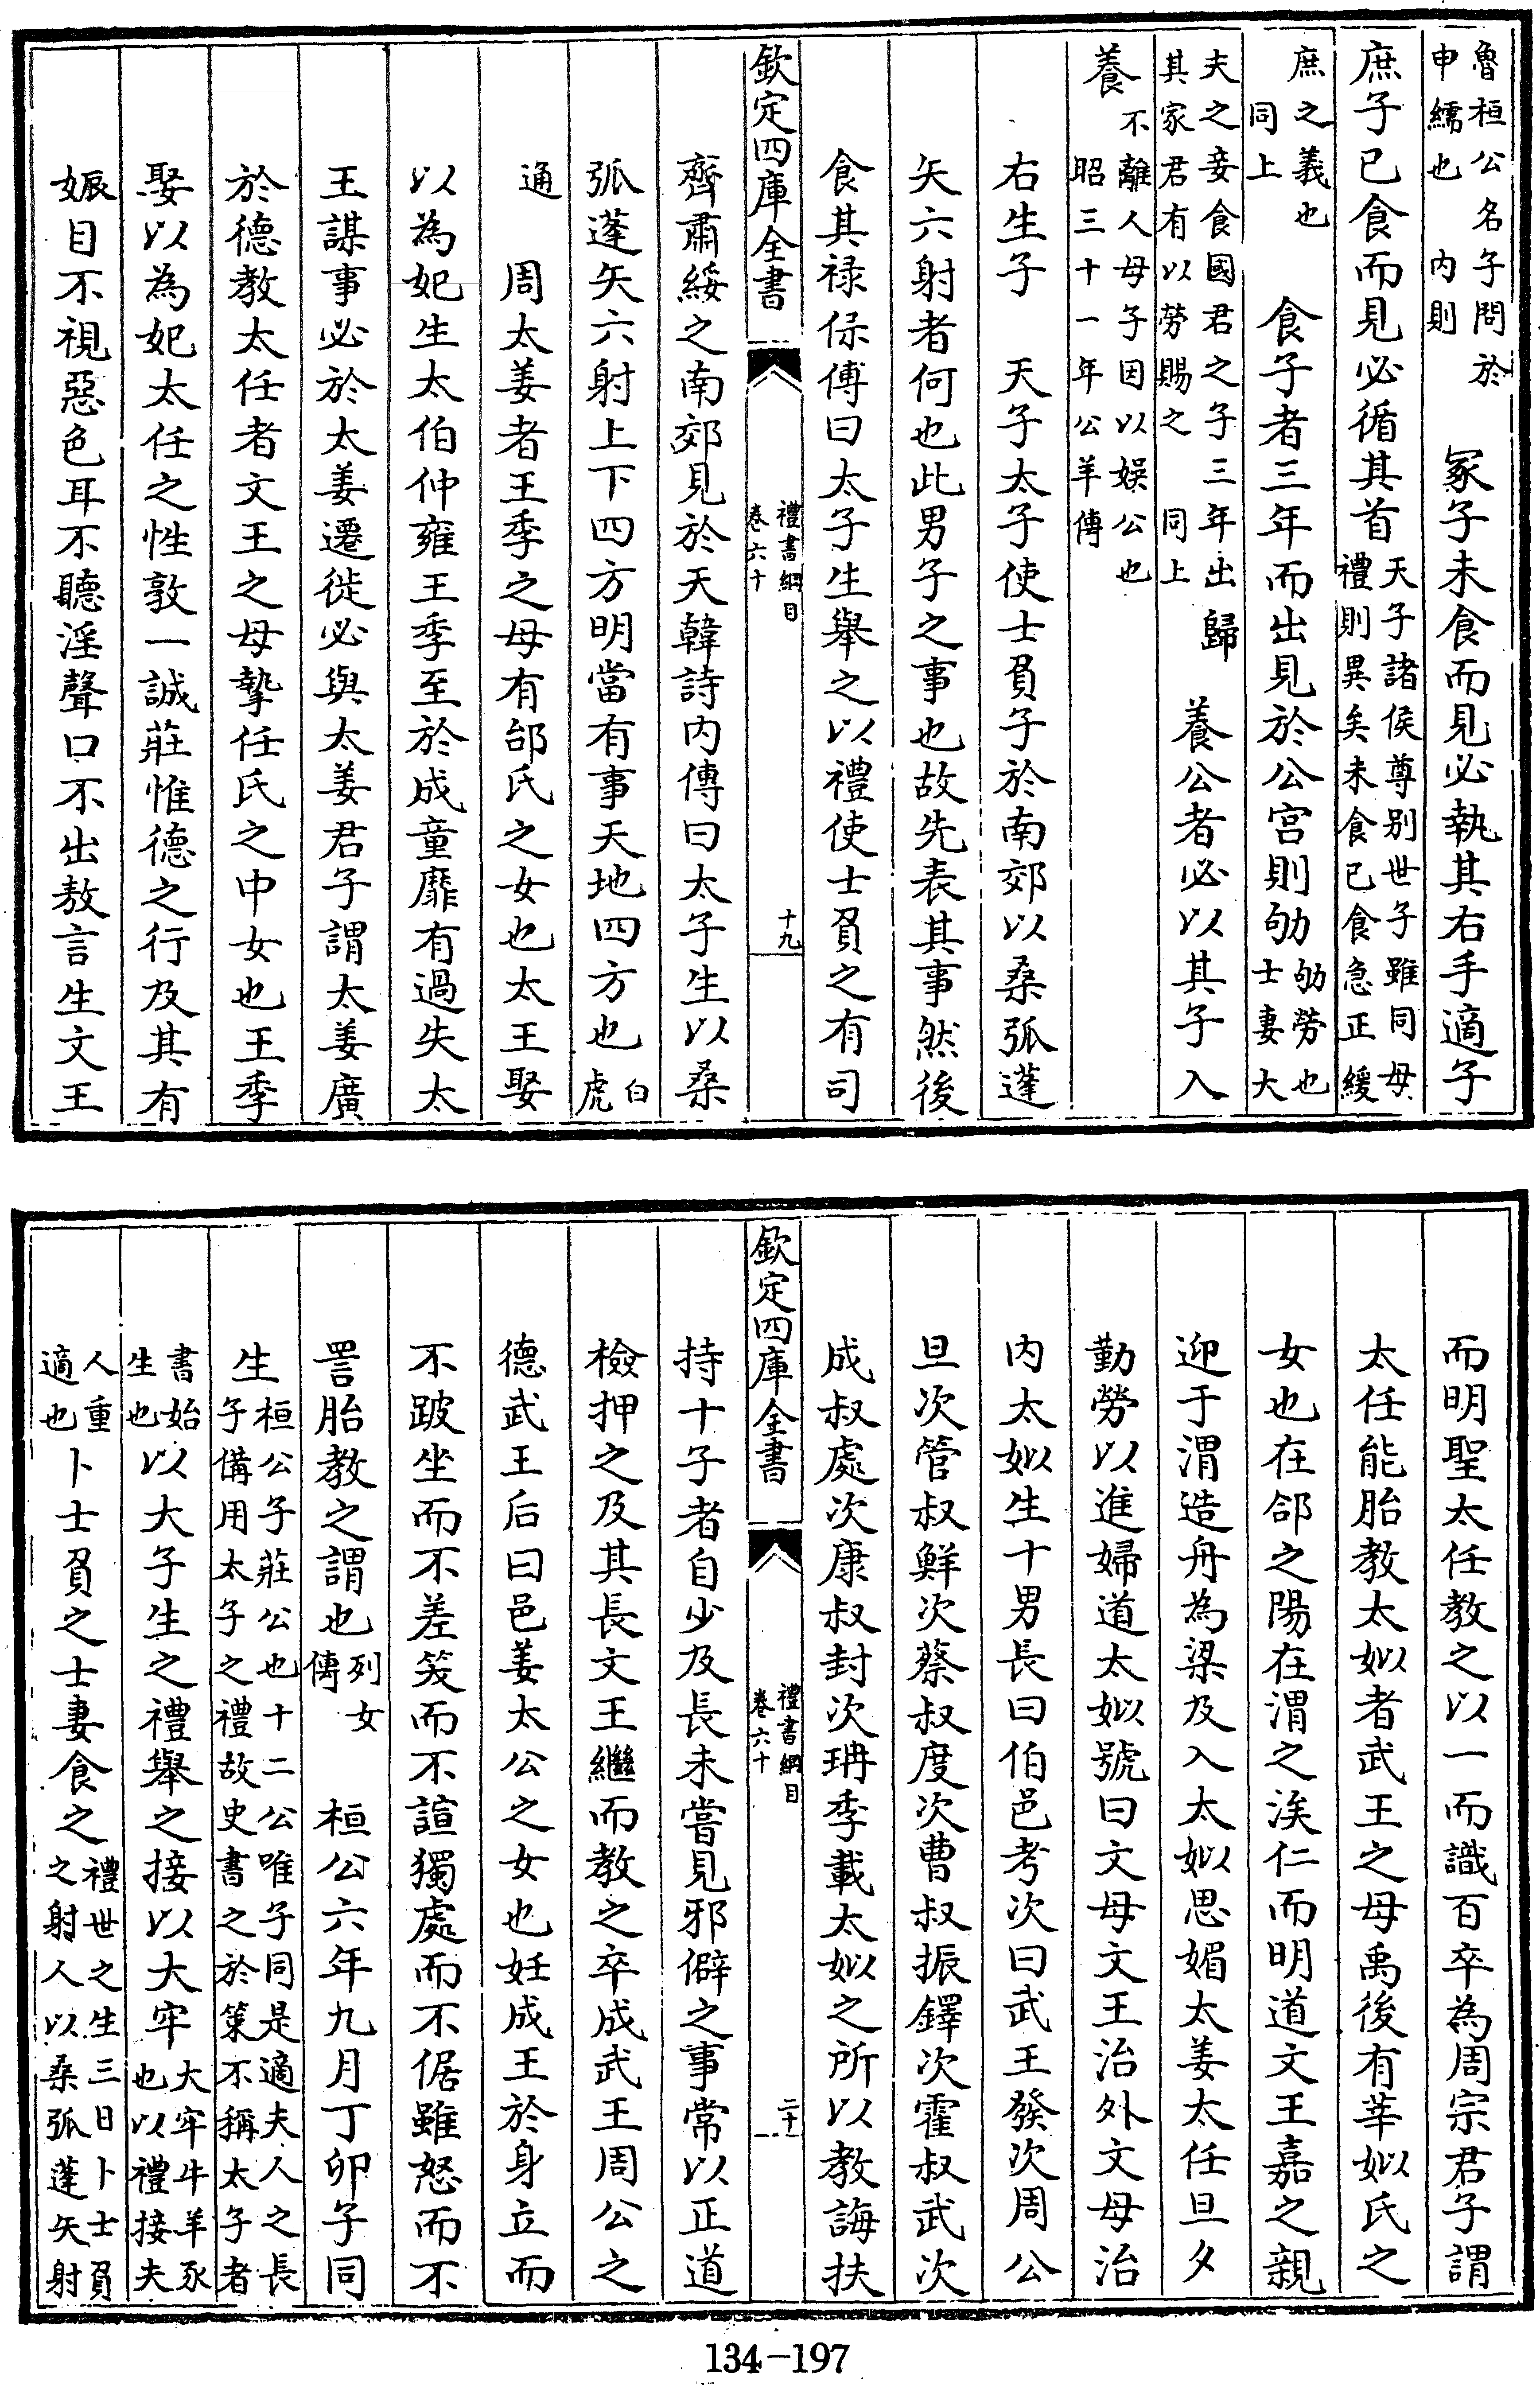 魯桓公名子問於申繻也　内則　冢子未食而見必執其右手適子
庶子已食而見必循其首天子諸侯尊别世子雖同母禮則異矣未食已食急正緩
庶之義也同上　食子者三年而出見於公宫則劬劬勞也士妻大
夫之妾食國君之子三年出歸其家君有以勞賜之　同上　養公者必以其子入
養不離人母子因以娱公也昭三十一年公羊傳
右生子　天子太子使士負子於南郊以桑弧蓬
矢六射者何也此男子之事也故先表其事然後
食其禄保傅曰太子生舉之以禮使士負之有司
欽定四庫全書　禮書綱目卷六十　十九
齊肅綏之南郊見於天韓詩内傳曰太子生以桑
弧蓬矢六射上下四方明當有事天地四方也白虎
通　周太姜者王季之母有邰氏之女也太王娶
以為妃生太伯仲雍王季至於成童靡有過失太
王謀事必於太姜遷徙必與太姜君子謂太姜廣
於德教太任者文王之母摯任氏之中女也王季
娶以為妃太任之性敦一誠莊惟德之行及其有
娠目不視惡色耳不聽淫聲口不出敖言生文王
而明聖太任教之以一而識百卒為周宗君子謂
太任能胎教太姒者武王之母禹後有莘姒氏之
女也在郃之陽在渭之涘仁而明道文王嘉之親
迎于渭造舟為梁及入太姒思媚太姜太任旦夕
勤勞以進婦道太姒號曰文母文王治外文母治
内太姒生十男長曰伯邑考次曰武王發次周公
旦次管叔鮮次蔡叔度次曹叔振鐸次霍叔武次
成叔處次康叔封次𤕜季載太姒之所以教誨扶
欽定四庫全書　禮書綱目卷六十　二十
持十子者自少及長未嘗見邪僻之事常以正道
檢押之及其長文王繼而教之卒成武王周公之
德武王后曰邑姜太公之女也妊成王於身立而
不跛坐而不差笑而不諠獨處而不倨雖怒而不
詈胎教之謂也列女傳　桓公六年九月丁卯子同
生桓公子莊公也十二公唯子同是適夫人之長子備用太子之禮故史書之於策不稱太子者
書始生也以大子生之禮舉之接以大牢大牢牛羊豕也以禮接夫
人重適也卜士負之士妻食之禮世子生三日卜士負之射人以桑弧蓬矢射
134-197